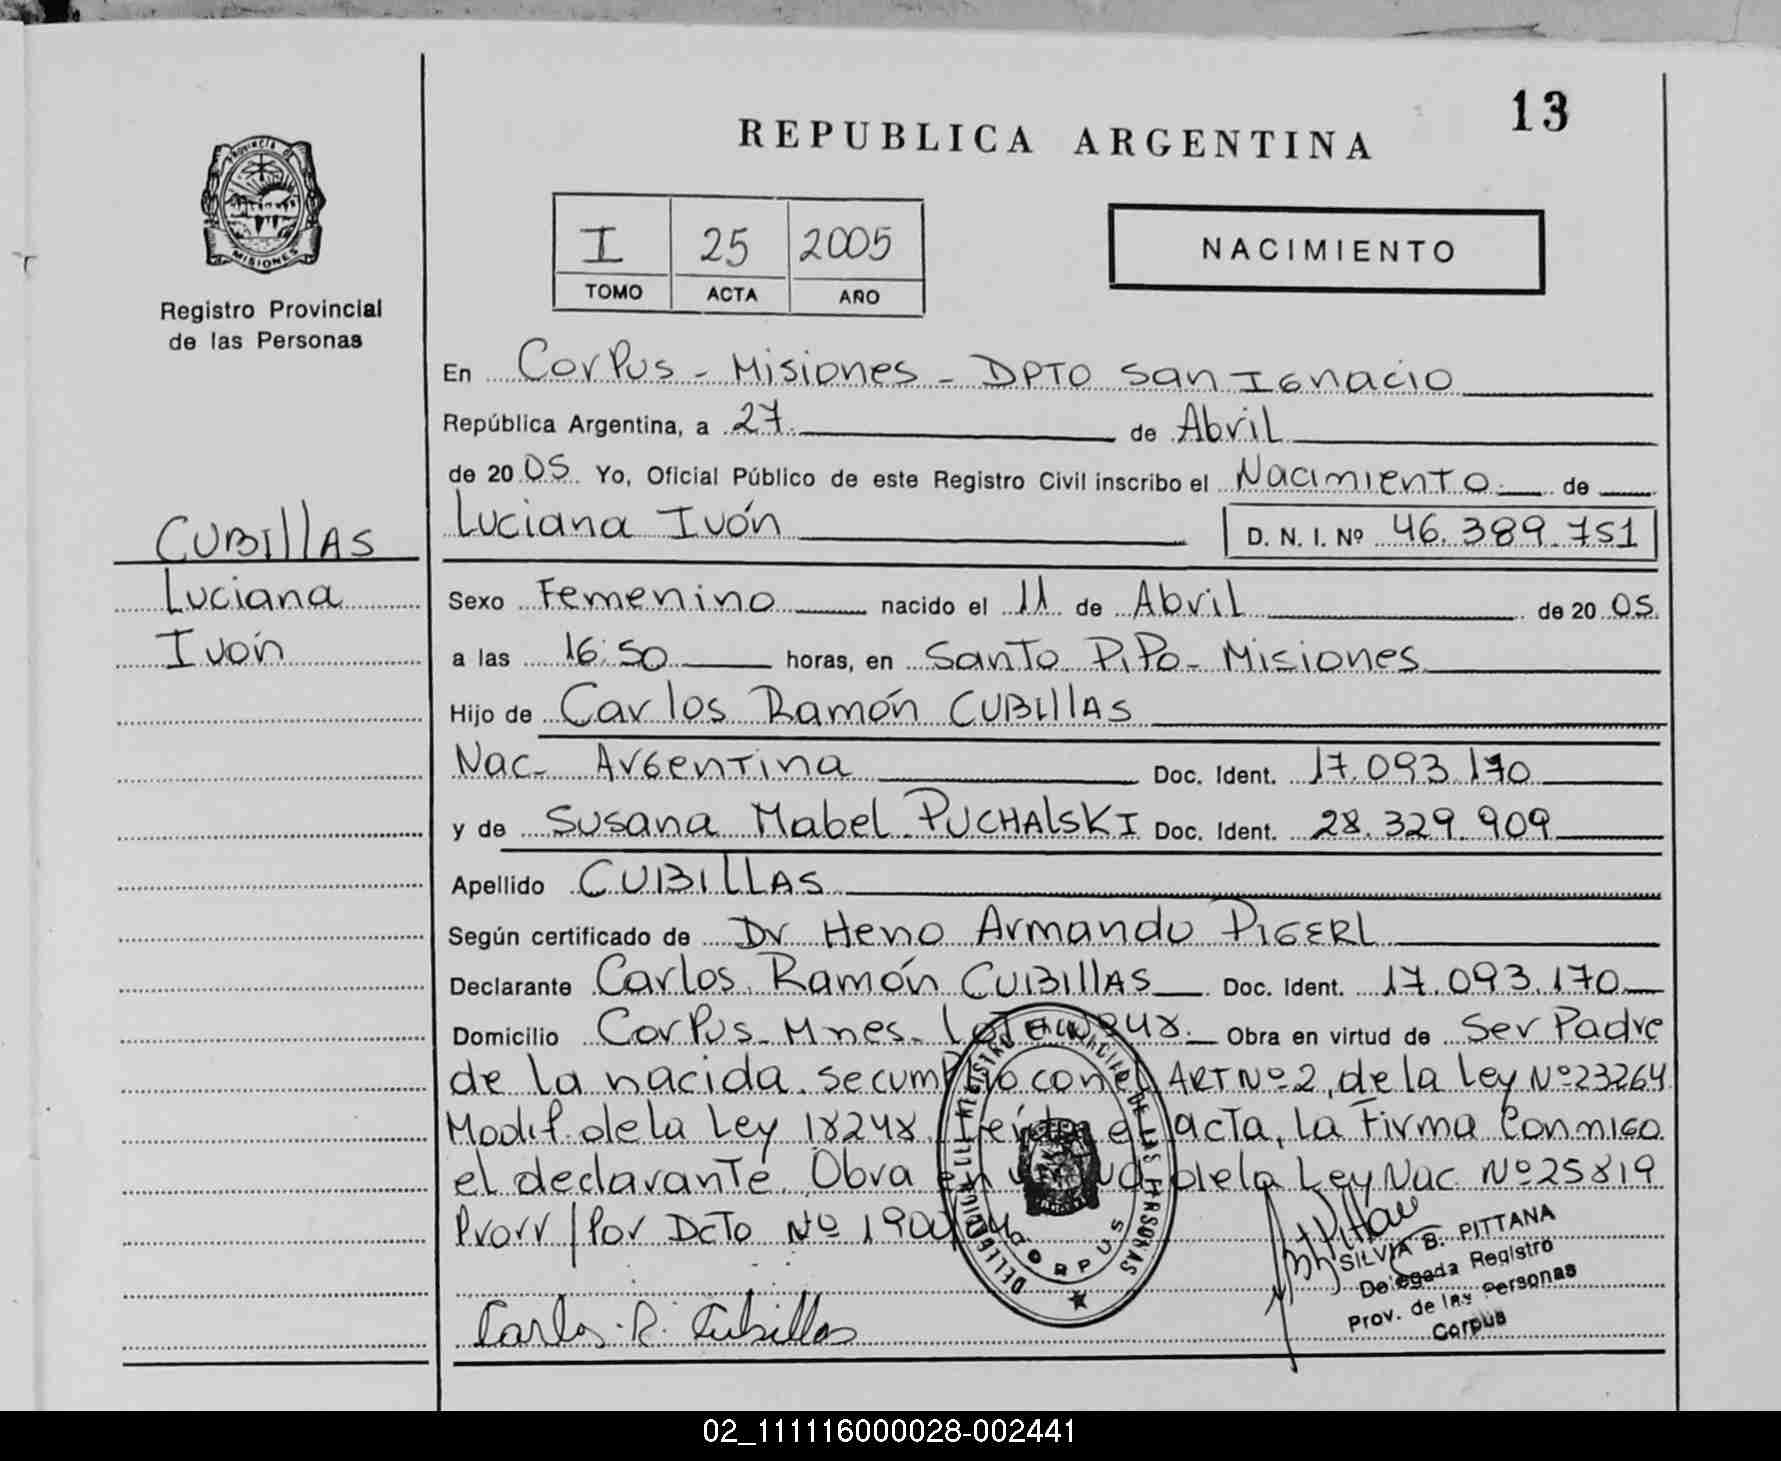 13
REPUBLICA ARGENTINA
PROVINCIA DE
MISIONES
Registro Provincial
de las Personas
I 25 2005
TOMO ACTA AÑO
NACIMIENTO
En Corpus - Misiones - DPTO San Ignacio
República Argentina, a 27 de Abril
de 20 05 Yo, Oficial Público de este Registro Civil inscribo el Nacimiento de
Luciana Ivón D. N. I. Nº 46.389.751
CUBIllAS
Luciana
Ivón
Sexo Femenino nacido el 11 de Abril de 20 05
a las 16:50 horas, en Santo PiPo - Misiones
Hijo de Carlos Ramón CUBIllAS
Nac- Argentina Doc. Ident. 17.093.170
y de Susana Mabel PUCHAlSKI Doc. Ident. 28.329.909
Apellido CUBILLAS
Según certificado de Dr Heno Armando PIGERL
Declarante Carlos Ramón CUBIllAS Doc. Ident. 17.093.170
Domicilio Corpus - Mnes - Obra en virtud de Ser Padre
de la nacida. se cumplio con el ART Nº 2, de la Ley Nº 23264
Modif. de la Ley 18248 Leida el acta, la Firma Conmigo
el declarante. Obra en virtud de la Ley Nac. Nº 25819
Prorr / Por DcTo Nº
REGISTRO PROVINCIAL DE LAS PERSONAS
CORPUS
Carlos R. Cubillas
SILVIA B. PITTANA
Delegada Registro
Prov. de las Personas
Corpus
02_111116000028-002441